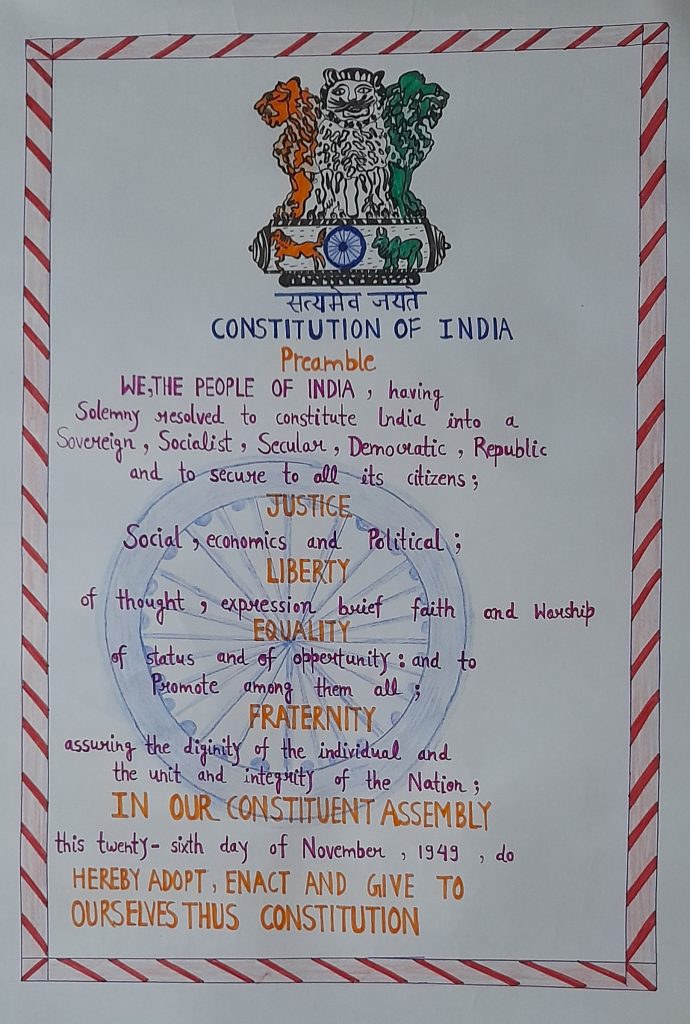 सत्यमेव जयते
CONSTITUTION OF INDIA
Preamble
WE, THE PEOPLE OF INDIA , having
Solemny resolved to constitute India into a
Sovereign , Socialist , Secular , Democratic , Republic
and to secure to all its citizens ;
JUSTICE
Social , economics and Political ;
LIBERTY
of thought , expression brief faith and Worship
EQUALITY
of status and of oppertunity : and to
Promote among them all ;
FRATERNITY
assuring the diginity of the individual and
the unit and integrity of the Nation ;
IN OUR CONSTITUENT ASSEMBLY
this twenty- sixth day of November , 1949 , do
HEREBY ADOPT , ENACT AND GIVE TO
OURSELVES THUS CONSTITUTION